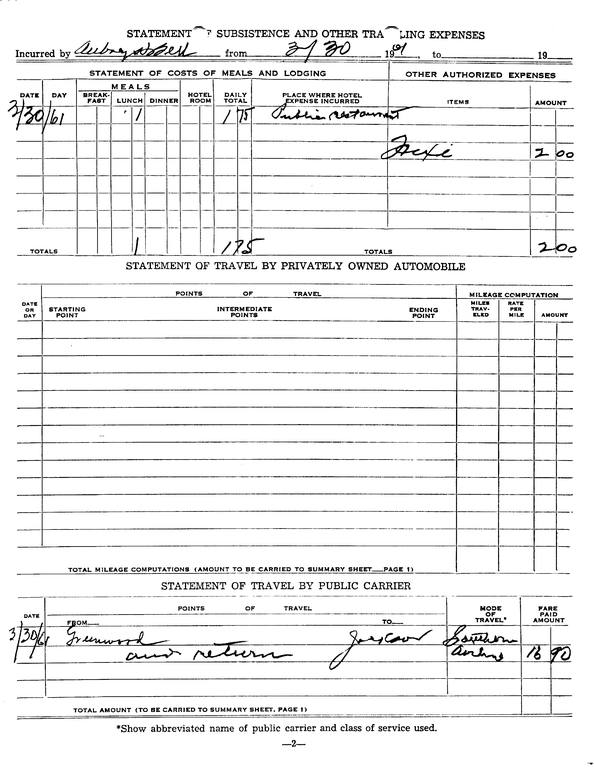 STATEMENT OF SUBSISTENCE AND OTHER TRAVELING EXPENSES
Incurred by Aubrey H Bell from 3/30 1961, to 19
STATEMENT OF COSTS OF MEALS AND LODGING OTHER AUTHORIZED EXPENSES
DATE DAY MEALS BREAK-FAST LUNCH DINNER HOTEL ROOM DAILY TOTAL PLACE WHERE HOTEL EXPENSE INCURRED ITEMS AMOUNT
3/30/61 1 1 75 Public restaurant
2 00
TOTALS 1 1 75 TOTALS 2 00
STATEMENT OF TRAVEL BY PRIVATELY OWNED AUTOMOBILE
POINTS OF TRAVEL MILEAGE COMPUTATION
DATE OR DAY STARTING POINT INTERMEDIATE POINTS ENDING POINT MILES TRAV-ELED RATE PER MILE AMOUNT
TOTAL MILEAGE COMPUTATIONS (AMOUNT TO BE CARRIED TO SUMMARY SHEET—PAGE 1)
STATEMENT OF TRAVEL BY PUBLIC CARRIER
DATE POINTS OF TRAVEL MODE OF TRAVEL* FARE PAID AMOUNT
FROM— TO—
3/30/61 Greenwood Jackson Southern
and return Airlines 16 90
TOTAL AMOUNT (TO BE CARRIED TO SUMMARY SHEET, PAGE 1)
*Show abbreviated name of public carrier and class of service used.
—2—